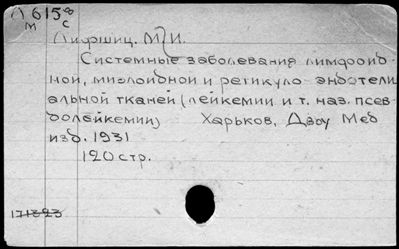 Л 615⁰⁰
м с
Лифшиц. М. И.
Системные заболевания лимфоид-
ной, миэлоидной и ретикуло-эндотели
альной тканей (лейкемии и т. наз. псев-
долейкемии) Харьков, Двоу Мед
изд. 1931
120 стр.
171323